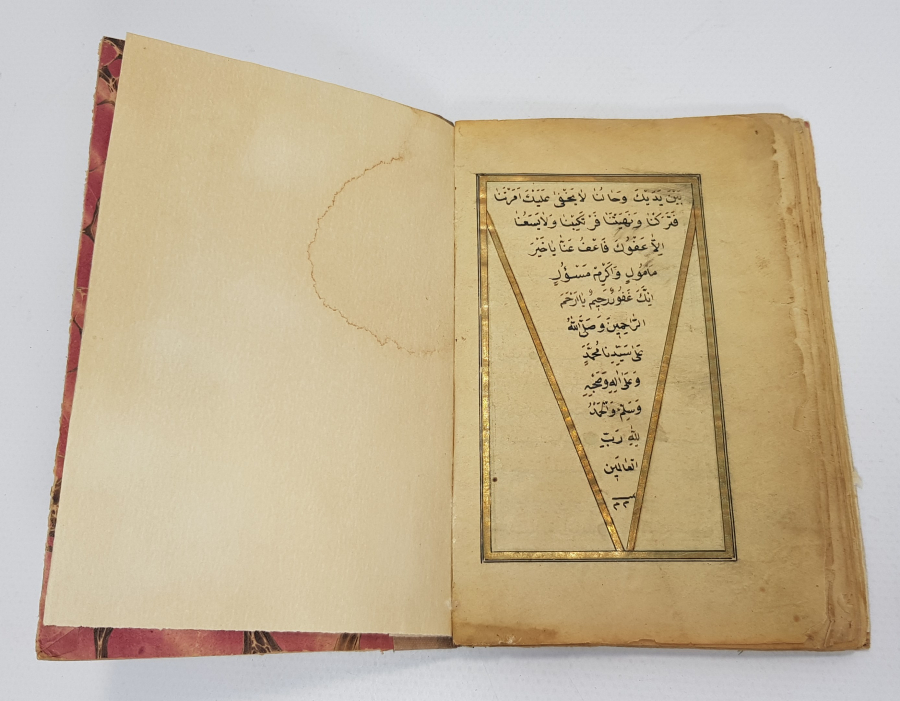 بَيْنَ يَدَيْكَ وَحَالُنَا لَا يَخْفٰى عَلَيْكَ اَمَرْتَنَا
فَتَرَكْنَا وَنَهَيْتَنَا فَارْتَكَبْنَا وَلَا يَسَعُنَا
اِلَّا عَفْوُكَ فَاعْفُ عَنَّا يَا خَيْرَ
مَأْمُولٍ وَاَكْرَمَ مَسْؤُلٍ
اِنَّكَ غَفُورٌ رَحِيمٌ يَا اَرْحَمَ
الرَّاحِمِينَ وَصَلَّى اللّٰهُ
عَلٰى سَيِّدِنَا مُحَمَّدٍ
وَعَلٰى اٰلِهِ وَصَحْبِهِ
وَسَلِّمْ وَالْحَمْدُ
لِلّٰهِ رَبِّ
الْعَالَمِينَ